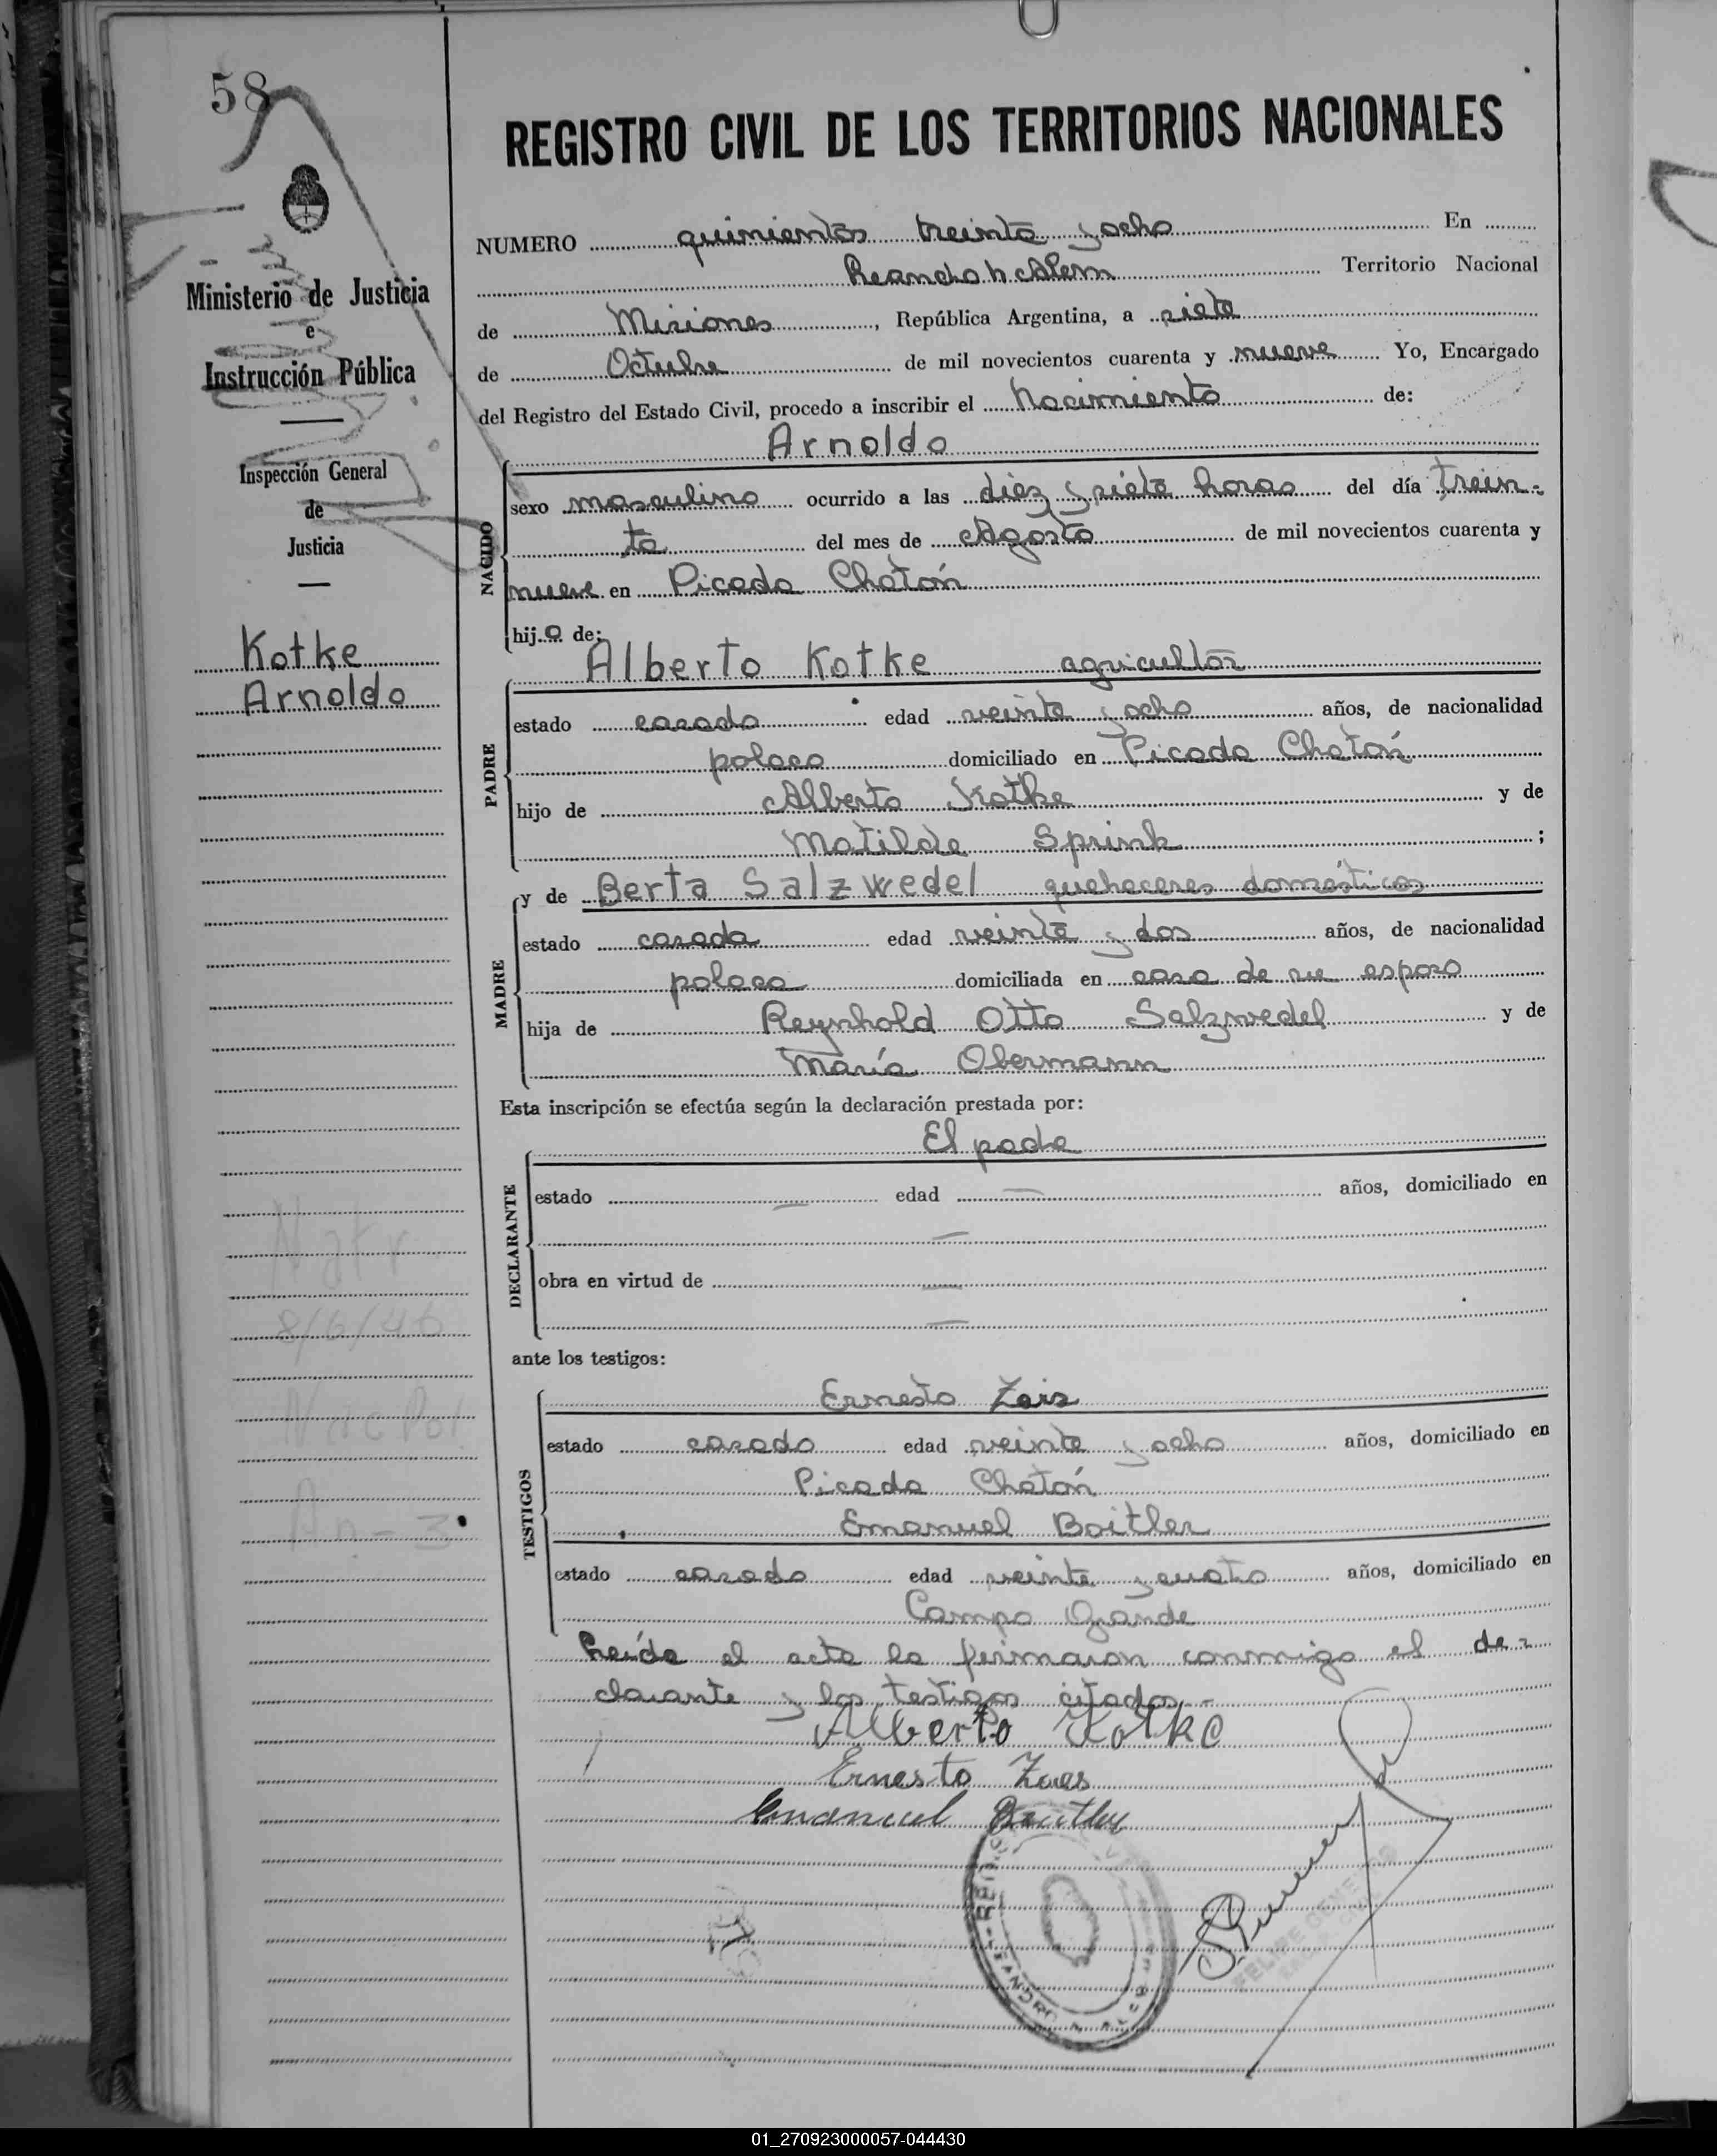 58
REGISTRO CIVIL DE LOS TERRITORIOS NACIONALES
Ministerio de Justicia
e
Instrucción Pública
Inspección General
de
Justicia
Kotke
Arnoldo
NUMERO quinientos treinta y ocho En
Leandro N. Alem Territorio Nacional
de Misiones, República Argentina, a siete
de Octubre de mil novecientos cuarenta y nueve Yo, Encargado
del Registro del Estado Civil, procedo a inscribir el Nacimiento de:
Arnoldo
NACIDO
sexo masculino ocurrido a las diez y siete horas del día trein-
ta del mes de Agosto de mil novecientos cuarenta y
nueve en Picada Chatón
hijo de:
Alberto Kotke agricultor
PADRE
estado casado edad veinte y ocho años, de nacionalidad
polaco domiciliado en Picada Chatón
hijo de Alberto Kotke y de
Matilde Sprink ;
y de Berta Salzwedel quehaceres domésticos
MADRE
estado casada edad veinte y dos años, de nacionalidad
polaca domiciliada en casa de su esposo
hija de Reynhold Otto Salzwedel y de
María Obermann
Esta inscripción se efectúa según la declaración prestada por:
El padre
DECLARANTE
estado — edad — años, domiciliado en
—
obra en virtud de —
—
ante los testigos:
TESTIGOS
Ernesto Zais
estado casado edad veinte y ocho años, domiciliado en
Picada Chatón
Emanuel Boitler
estado casado edad veinte y cuatro años, domiciliado en
Campo Grande
Leída el acta la firmaron conmigo el de-
clarante y los testigos citados.-
Alberto Kotke
Ernesto Zaes
Emanuel Boitler
Natr
8/6/46
Nac Pol
An - 3
01_270923000057-044430